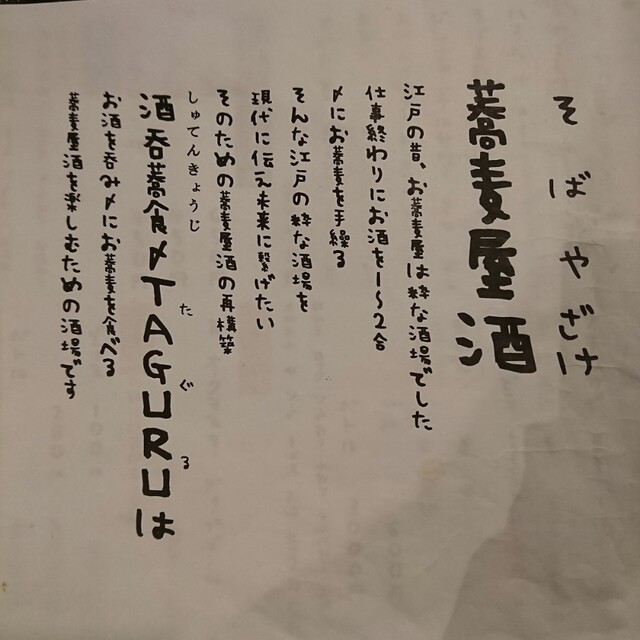 そばやざけ
蕎麦屋酒
江戸の昔、お蕎麦屋は粋な酒場でした
仕事終わりにお酒を1〜2合
〆にお蕎麦を手繰る
そんな江戸の粋な酒場を
現代に伝え未来に繋げたい
そのための蕎麦屋酒の再構築
しゅてんきょうじ たぐる
酒呑蕎食〆TAGURUは
お酒を呑み〆にお蕎麦を食べる
蕎麦屋酒を楽しむための酒場です